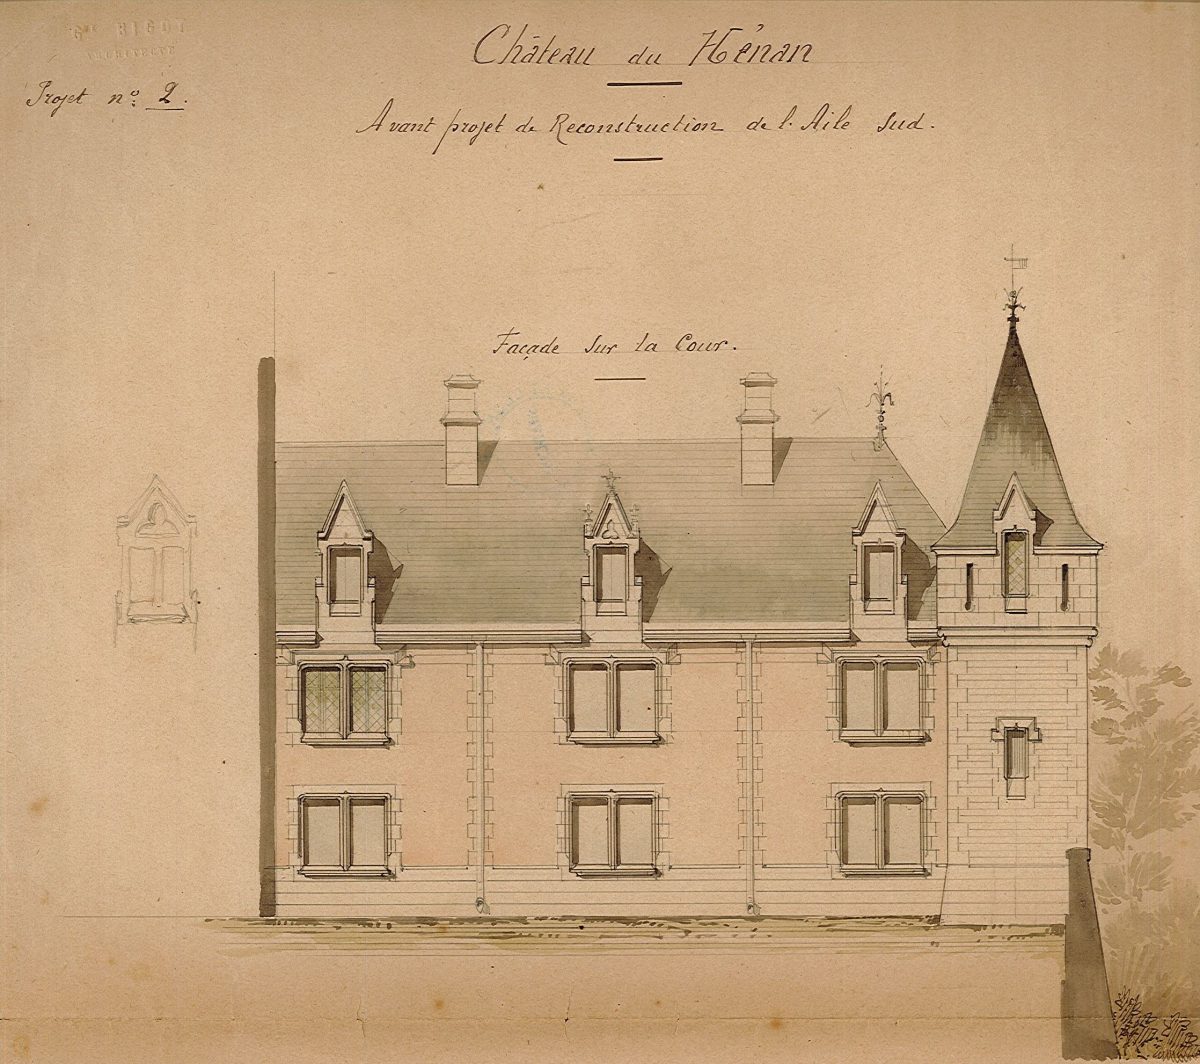 Gve BIGOT
ARCHITECTE
Projet no: 2.
Château du Hénan
Avant projet de Reconstruction de l'Aile Sud.
Façade sur la Cour.